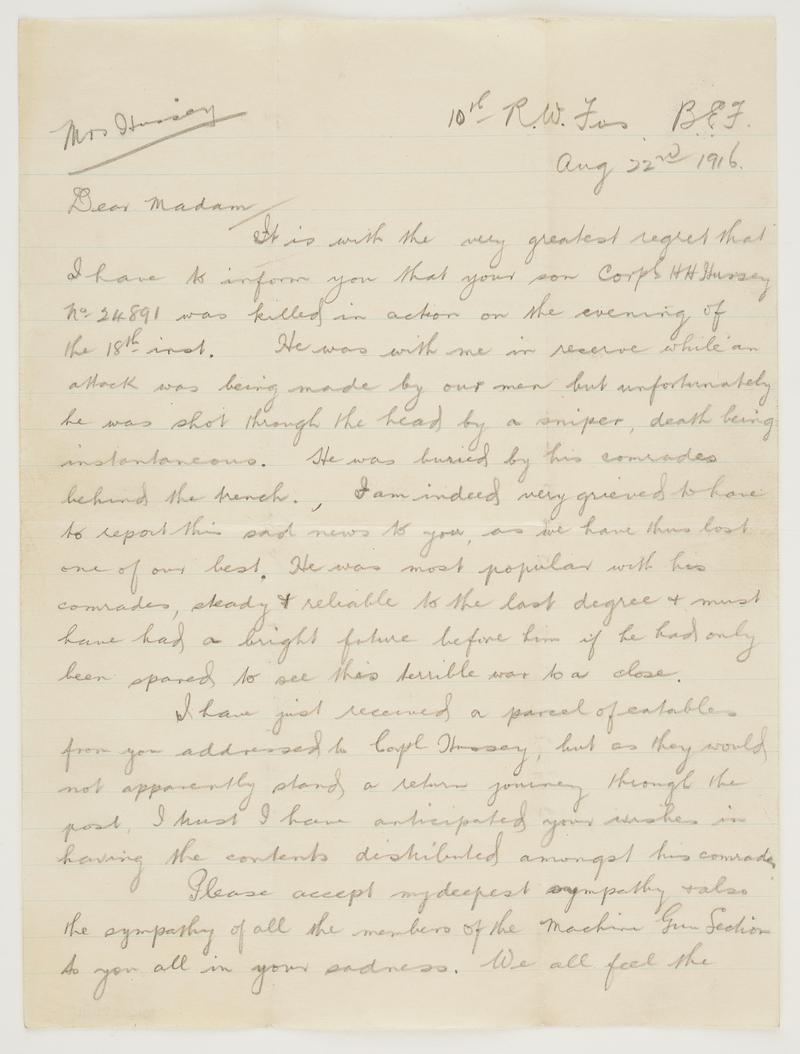 Mrs Hussey
10th R.W. Fus. B.E.F.
Aug 22nd 1916.
Dear Madam
It is with the very greatest regret that
I have to inform you that your son Corpl HH Hussey
No 24891 was killed in action on the evening of
the 18th inst. He was with me in reserve while an
attack was being made by our men but unfortunately
he was shot through the head by a sniper, death being
instantaneous. He was buried by his comrades
behind the trench. , I am indeed very grieved to have
to report this sad news to you, as we have thus lost
one of our best. He was most popular with his
comrades, steady & reliable to the last degree & must
have had a bright future before him if he had only
been spared to see this terrible war to a close.
I have just received a parcel of eatables
from you addressed to Corpl Hussey, but as they would
not apparently stand a return journey through the
post, I trust I have anticipated your wishes in
having the contents distributed amongst his comrades
Please accept my deepest sympathy & also
the sympathy of all the members of the Machine Gun Section
to you all in your sadness. We all feel the